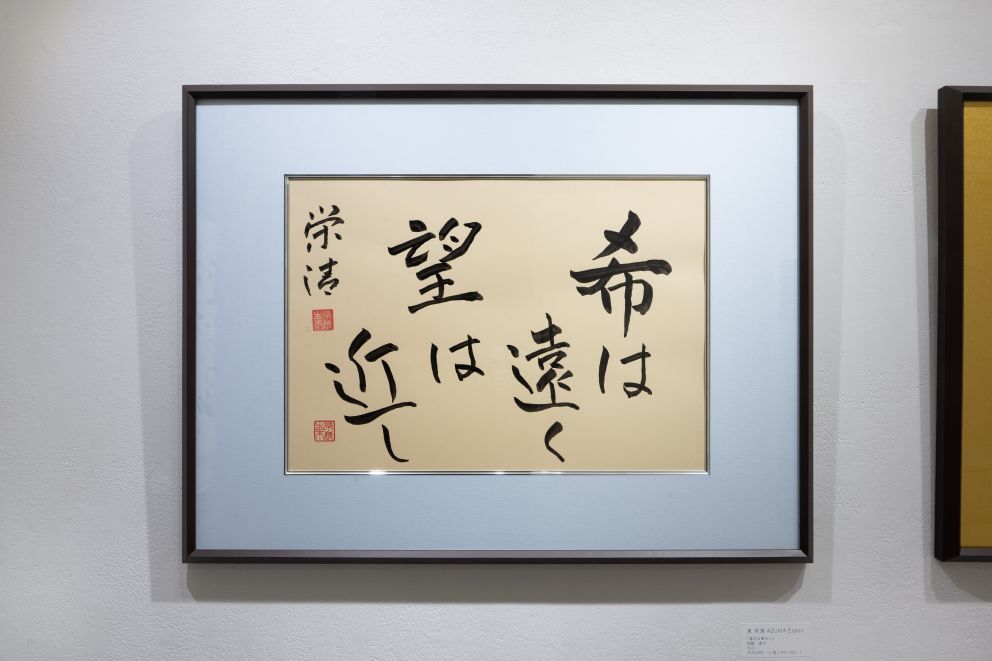 希は
遠く
望は
近し
栄清
東 栄清 AZUMA Eishin